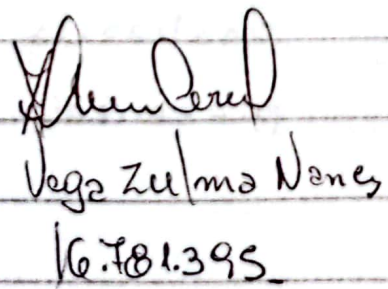 Vega Zulma Nancy
16.781.395